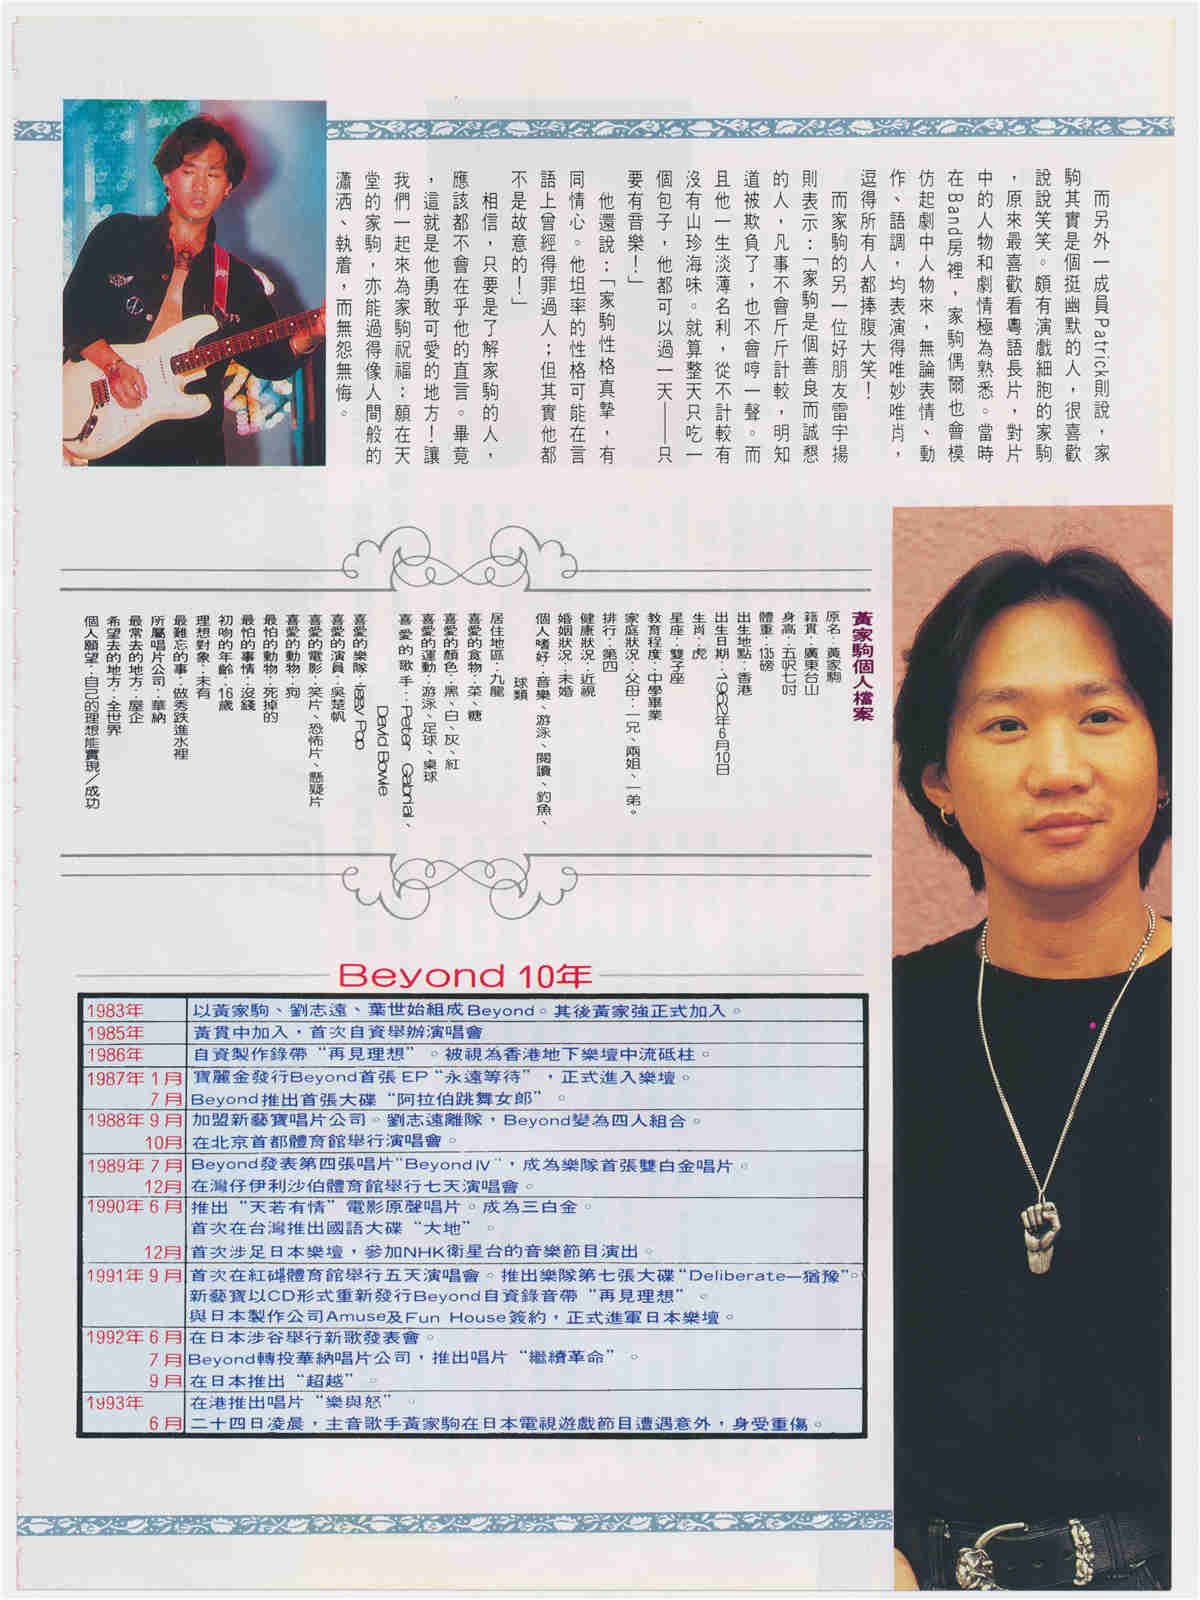 而另外一成員Patrick則說，家
駒其實是個挺幽默的人，很喜歡
說說笑笑。頗有演戲細胞的家駒
，原來最喜歡看粵語長片，對片
中的人物和劇情極為熟悉。當時
在Band房裡，家駒偶爾也會模
仿起劇中人物來，無論表情、動
作、語調，均表演得唯妙唯肖，
逗得所有人都捧腹大笑！
而家駒的另一位好朋友雷宇揚
則表示：「家駒是個善良而誠懇
的人，凡事不會斤斤計較，明知
道被欺負了，也不會哼一聲。而
且他一生淡薄名利，從不計較有
沒有山珍海味。就算整天只吃一
個包子，他都可以過一天——只
要有音樂！」
他還說：「家駒性格真摯，有
同情心。他坦率的性格可能在言
語上曾經得罪過人；但其實他都
不是故意的！」
相信，只要是了解家駒的人，
應該都不會在乎他的直言。畢竟
，這就是他勇敢可愛的地方！讓
我們一起來為家駒祝福：願在天
堂的家駒，亦能過得像人間般的
瀟洒、執着，而無怨無悔。
黃家駒個人檔案
原名：黃家駒
籍貫：廣東台山
身高：五呎七吋
體重：135磅
出生地點：香港
出生日期：1962年6月10日
生肖：虎
星座：雙子座
教育程度：中學畢業
家庭狀況：父母、一兄、兩姐、一弟。
排行：第四
健康狀況：近視
婚姻狀況：未婚
個人嗜好：音樂、游泳、閱讀、釣魚、
球類
居住地區：九龍
喜愛的食物：菜、糖
喜愛的顏色：黑、白、灰、紅
喜愛的運動：游泳、足球、桌球
喜愛的歌手：Peter Gabrial、
David Bowie
喜愛的樂隊：
喜愛的演員：吳楚帆
喜愛的電影：笑片、恐怖片、懸疑片
喜愛的動物：狗
最怕的動物：死掉的
最怕的事情：沒錢
初吻的年齡：16歲
理想對象：未有
最難忘的事：做秀跌進水裡
所屬唱片公司：華納
最常去的地方：屋企
希望去的地方：全世界
個人願望：自己的理想能實現／成功
Beyond 10年
1983年 以黃家駒、劉志遠、葉世始組成Beyond。其後黃家強正式加入。
1985年 黃貫中加入，首次自資舉辦演唱會
1986年 自資製作錄帶“再見理想”。被視為香港地下樂壇中流砥柱。
1987年 1月 寶麗金發行Beyond首張EP“永遠等待”，正式進入樂壇。
7月 Beyond推出首張大碟“阿拉伯跳舞女郎”。
1988年 9月 加盟新藝寶唱片公司。劉志遠離隊，Beyond變為四人組合。
10月 在北京首都體育館舉行演唱會。
1989年 7月 Beyond發表第四張唱片“Beyond IV”，成為樂隊首張雙白金唱片。
12月 在灣仔伊利沙伯體育館舉行七天演唱會。
1990年 6月 推出“天若有情”電影原聲唱片。成為三白金。
首次在台灣推出國語大碟“大地”。
12月 首次涉足日本樂壇，參加NHK衛星台的音樂節目演出。
1991年 9月 首次在紅磡體育館舉行五天演唱會。推出樂隊第七張大碟“Deliberate—猶豫”。
新藝寶以CD形式重新發行Beyond自資錄音帶“再見理想”。
與日本製作公司Amuse及Fun House簽約，正式進軍日本樂壇。
1992年 6月 在日本涉谷舉行新歌發表會。
7月 Beyond轉投華納唱片公司，推出唱片“繼續革命”。
9月 在日本推出“超越”。
1993年 在港推出唱片“樂與怒”。
6月 二十四日凌晨，主音歌手黃家駒在日本電視遊戲節目遭遇意外，身受重傷。